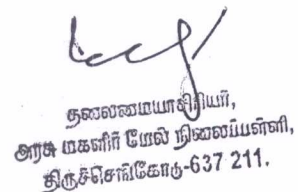 தலைமையாசிரியர்,
அரசு மகளிர் மேல் நிலைப்பள்ளி,
திருச்செங்கோடு-637 211.